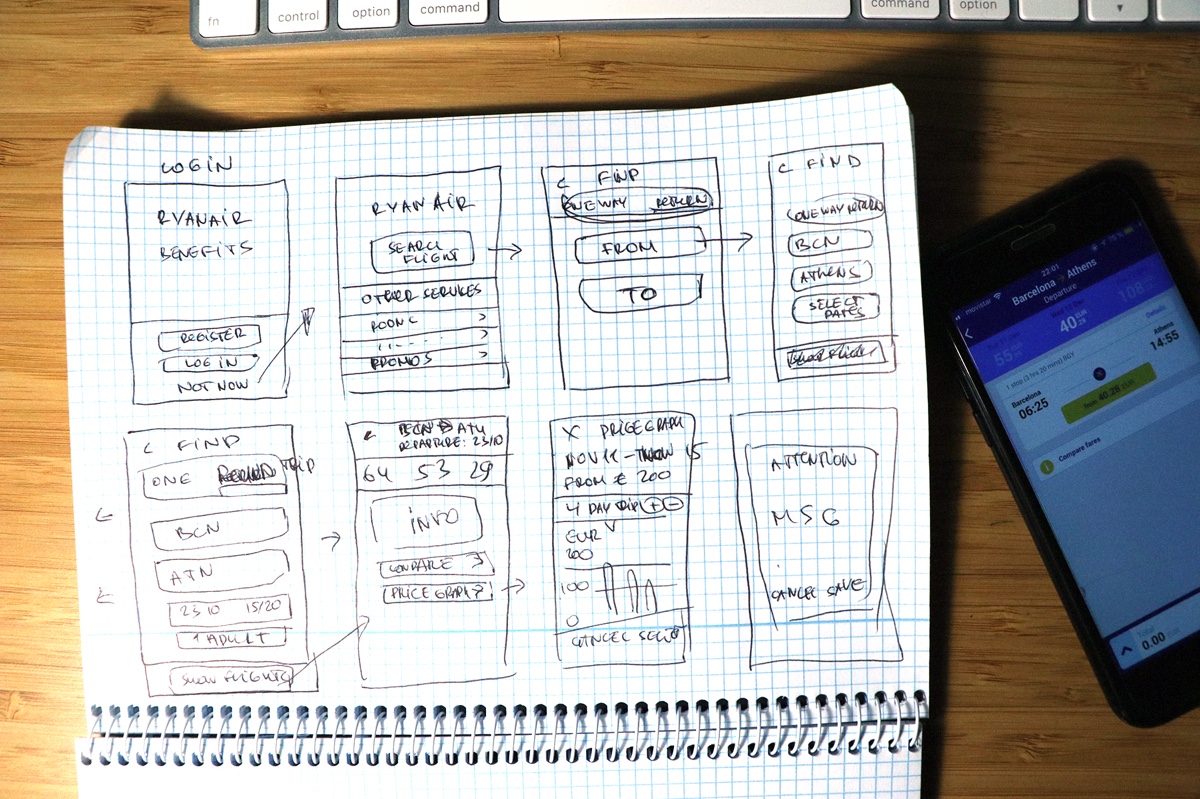 fn
control
option
command
command
option
LOGIN
RYANAIR
BENEFITS
REGISTER
LOG IN
NOT NOW
RYANAIR
SEARCH
FLIGHT
OTHER SERVICES
>
>
PROMOS >
< FIND
ONE WAY RETURN
FROM
TO
< FIND
ONE WAY RETURN
BCN
ATHENS
SELECT
DATES
< FIND
ONE TRIP
BCN
ATN
23 10 15/20
1 ADULT
SHOW FLIGHTS
< BCN → ATH
DEPARTURE: 23/10
64 53 29
INFO
COMPARE >
PRICE GRAPH >
X PRICE GRAPH
FROM € 200
4 DAY TRIP + -
EUR
200
100
0
CANCEL
ATTENTION
MSG
CANCEL SAVE
movistar 22:01
Barcelona → Athens
Departure
55 40 EUR .28 108
Details
1 stop (3 hrs 20 mins) BGY
Barcelona Athens
06:25 14:55
from 40.28 EUR
Compare fares
Total
0.00 EUR